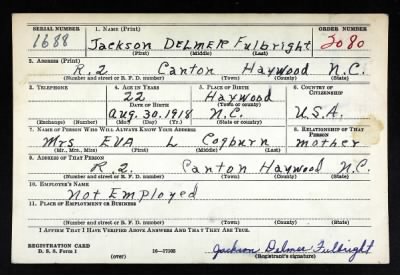 SERIAL NUMBER 1. NAME (Print) ORDER NUMBER
1688 Jackson DELMER Fulbright 2080
(First) (Middle) (Last)
2. ADDRESS (Print)
R.2 Canton Haywood N.C.
(Number and street or R. F. D. number) (Town) (County) (State)
3. TELEPHONE 4. AGE IN YEARS 5. PLACE OF BIRTH 6. COUNTRY OF CITIZENSHIP
22 Haywood
DATE OF BIRTH (Town or county)
Aug. 30. 1918 N.C. U.S.A.
(Exchange) (Number) (Mo.) (Day) (Yr.) (State or country)
7. NAME OF PERSON WHO WILL ALWAYS KNOW YOUR ADDRESS 8. RELATIONSHIP OF THAT PERSON
Mrs EVA L Cogburn mother
(Mr., Mrs., Miss) (First) (Middle) (Last)
9. ADDRESS OF THAT PERSON
R.2. Canton Haywood N.C.
(Number and street or R. F. D. number) (Town) (County) (State)
10. EMPLOYER'S NAME
Not Employed
11. PLACE OF EMPLOYMENT OR BUSINESS
(Number and street or R. F. D. number) (Town) (County) (State)
I AFFIRM THAT I HAVE VERIFIED ABOVE ANSWERS AND THAT THEY ARE TRUE.
REGISTRATION CARD
D. S. S. Form 1 (over) 16—17105 Jackson Delmer Fulbright
(Registrant's signature)